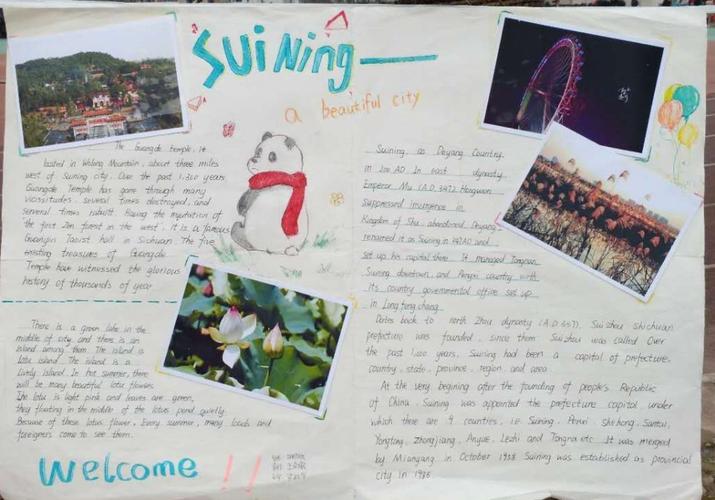 SUiNing —
a beautiful city
The Guangde temple. It
located in Wolong Mountain, about three miles
west of Suining city. Over the past 1,320 years
Guangde Temple has gone through many
vicissitudes. several times destroyed, and
several times rebuilt. Having the reputation of
"the first Zen forest in the west". It is a famous
Guanyin Taoist hall in Sichuan. The five
existing treasures of Guangde
Temple have witnessed the glorious
history of thousands of year
There is a green lake in the
middle of city and there is an
island among them. The island is
Lotus island. The island is a
lively island. In hot summer, there
will be many beautiful lotus flowers.
The lotus is light pink and leaves are green,
they floating in the middle of the lotus pond quietly.
Because of these lotus flower, Every summer, many locals and
foreigners come to see them.
Welcome !!
Suining as Deyang Country.
in 200 AD In east dynasty
Emperor Mu (A.D.347)
suppressed insurgence in
Kingdom of Shu abandoned Deyang,
renamed it as Suining in 347AD and
set up his capital there. It managed
Suining downtown, and Pengxi country with
its country governmental office set up
in
Dates back to north Zhou dynasty (A.D.557), Suizhou
prefecture was founded, since then Suizhou was called Over
the past years, Suining had been a capital of prefecture,
country, state, province, region, and area.
At the very begining after the founding of people's Republic
of China. Suining was appointed the prefecture capital under
which there are 9 counties, i.e Suining. Penxi. Shehong. Santai,
Yongting, zhongjiang, Anyue, Lezhi and Tongna etc. It was merged
by Mianyang in October 1958 Suining was established as provincial
city in 1985